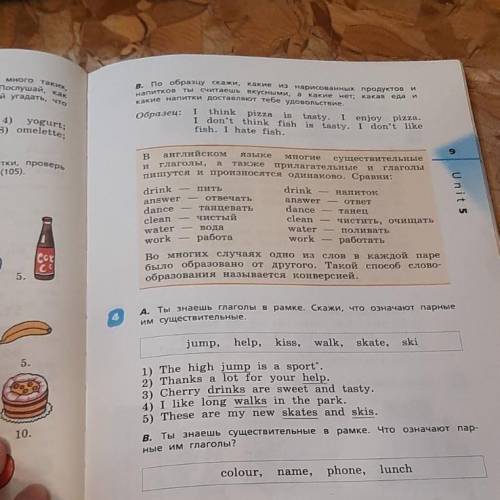 много таких,
Послушай, как
й угадать, что
4) yogurt;
8) omelette;
тки, проверь
(105).
5.
5.
10.
В. По образцу скажи, какие из нарисованных продуктов и
напитков ты считаешь вкусными, а какие нет; какая еда и
какие напитки доставляют тебе удовольствие.
Образец: I think pizza is tasty. I enjoy pizza.
I don't think fish is tasty. I don't like
fish. I hate fish.
9
Unit 5
В английском языке многие существительные
и глаголы, а также прилагательные и глаголы
пишутся и произносятся одинаково. Сравни:
drink — пить drink — напиток
answer — отвечать answer — ответ
dance — танцевать dance — танец
clean — чистый clean — чистить, очищать
water — вода water — поливать
work — работа work — работать
Во многих случаях одно из слов в каждой паре
было образовано от другого. Такой способ слово-
образования называется конверсией.
4
А. Ты знаешь глаголы в рамке. Скажи, что означают парные
им существительные.
jump, help, kiss, walk, skate, ski
1) The high jump is a sport*.
2) Thanks a lot for your help.
3) Cherry drinks are sweet and tasty.
4) I like long walks in the park.
5) These are my new skates and skis.
В. Ты знаешь существительные в рамке. Что означают пар-
ные им глаголы?
colour, name, phone, lunch